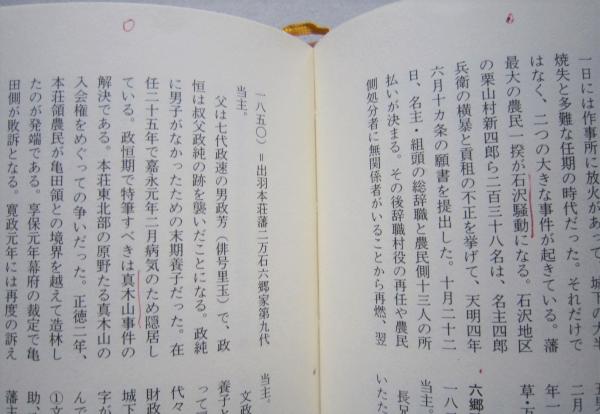 一日には作事所に放火があって、城下の大半
焼失と多難な任期の時代だった。それだけで
はなく、二つの大きな事件が起きている。藩
最大の農民一揆が石沢騒動になる。石沢地区
の栗山村新四郎ら二百三十八名は、名主四郎
兵衛の横暴と貢租の不正を挙げて、天明四年
六月十カ条の願書を提出した。十月二十二
日、名主・組頭の総辞職と農民側十三人の所
払いが決まる。その後辞職村役の再任や農民
側処分者に無関係者がいることから再燃、翌
二月
年一
草・
六郷
一八
当主
長兄
いたた
一八五〇)=出羽本荘藩二万石六郷家第九代
当主。
父は七代政速の男政芳(俳号里玉)で、政
恒は叔父政純の跡を襲いだことになる。政純
に男子がなかったための末期養子だった。在
任二十五年で嘉永元年二月病気のため隠居し
ている。政恒期で特筆すべきは真木山事件の
解決である。本荘東北部の原野たる真木山の
入会権をめぐっての争いだった。正徳二年、
本荘領農民が亀田領との境界を越えて造林し
たのが発端である。享保元年幕府の裁定で亀
田側が敗訴となる。寛政元年には再度の訴え
当主。
文政
養子と
って
代々
財政
城下
字が
んで
①文
助、
藩主